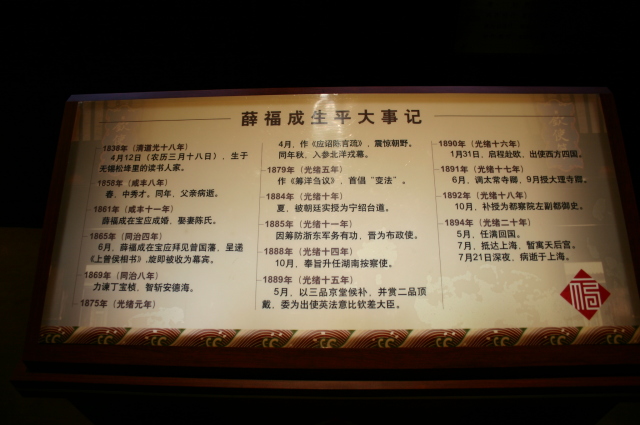 薛福成生平大事记
1838年（清道光十八年）
4月12日（农历三月十八日），生于
无锡松绛里的读书人家。
1958年（咸丰八年）
春，中秀才。同年，父亲病逝。
1861年（咸丰十一年）
薛福成在宝应成婚，娶妻陈氏。
1865年（同治四年）
6月，薛福成在宝应拜见曾国藩，呈递
《上曾侯相书》，旋即被收为幕宾。
1869年（同治八年）
力谏丁宝桢，智斩安德海。
1875年（光绪元年）
4月，作《应诏陈言疏》，震惊朝野。
同年秋，入参北洋戎幕。
1879年（光绪五年）
作《筹洋刍议》，首倡“变法”。
1884年（光绪十年）
夏，被朝廷实授为宁绍台道。
1885年（光绪十一年）
因筹防浙东军务有功，晋为布政使。
1888年（光绪十四年）
10月，奉旨升任湖南按察使。
1889年（光绪十五年）
5月，以三品京堂候补，并赏二品顶
戴，委为出使英法意比钦差大臣。
1890年（光绪十六年）
1月31日，启程赴欧，出使西方四国。
1891年（光绪十七年）
6月，调太常寺卿，9月授大理寺卿。
1892年（光绪十八年）
10月，补授为都察院左副都御史。
1894年（光绪二十年）
5月，任满回国。
7月，抵达上海，暂寓天后宫。
7月21日深夜，病逝于上海。